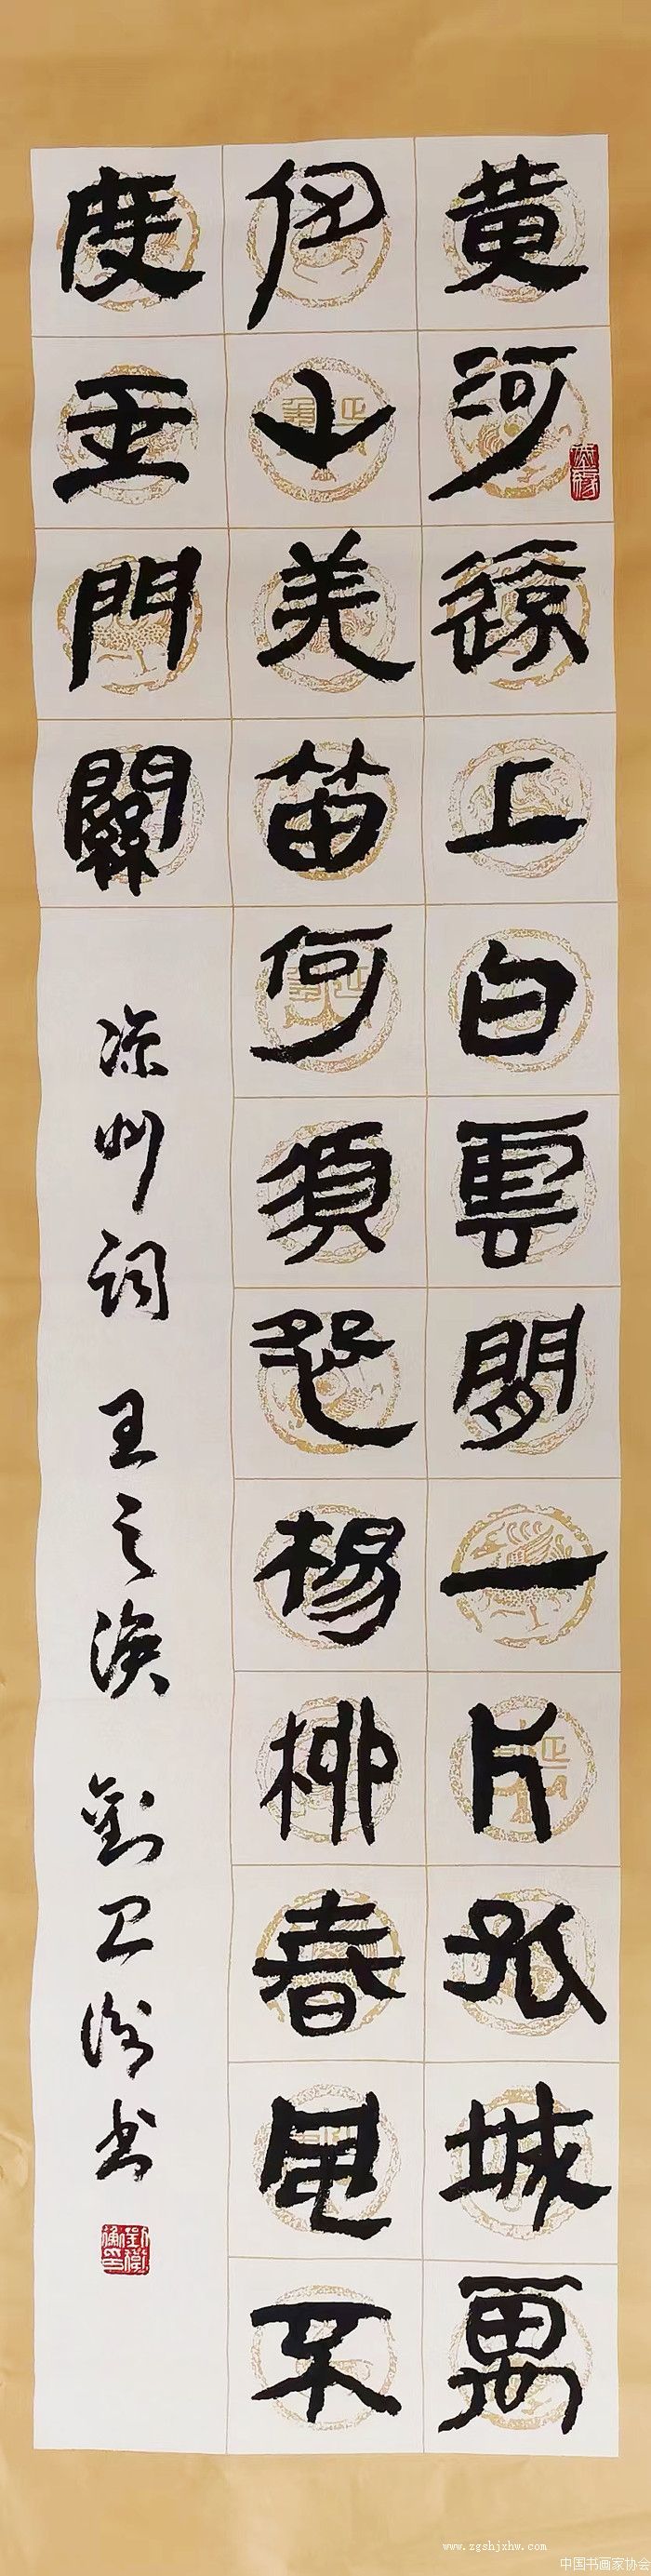 黄河遠上白雲間一片孤城萬
仞山羌笛何須怨楊柳春風不
度玉門關
凉州词 王之涣 劉卫书
www.zgshjxhw.com
中国书画家协会